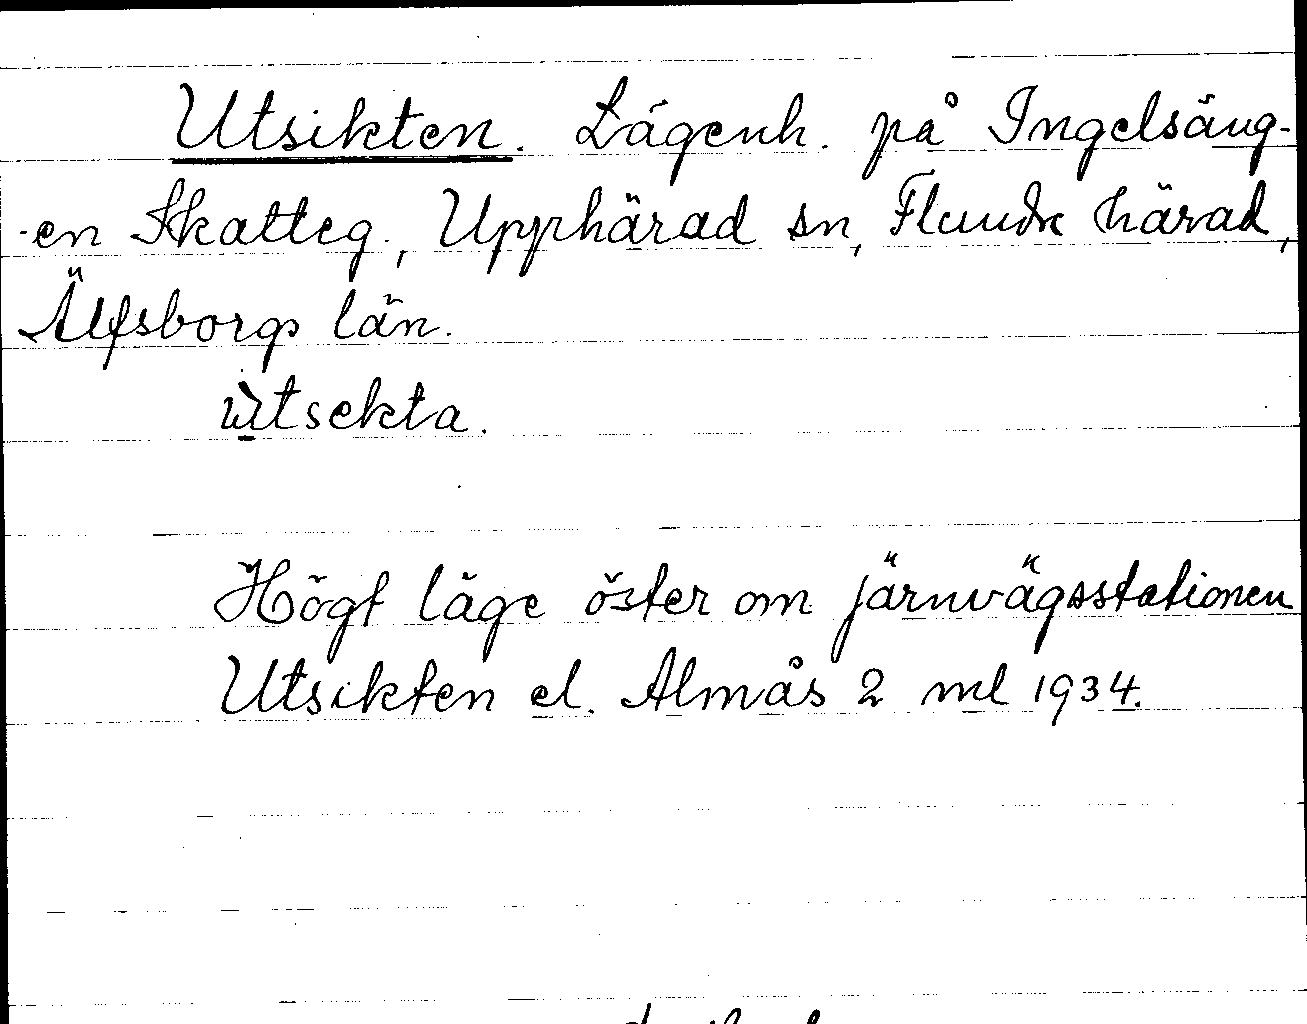 Utsikten. Lägenh. på Ingelsäng-
-en Skatteg., Upphärad sn, Flundre härad,
Älfsborgs län.
ùtsekta.
Högt läge öster om järnvägsstationen
Utsikten el. Almås 2 ml 1934.